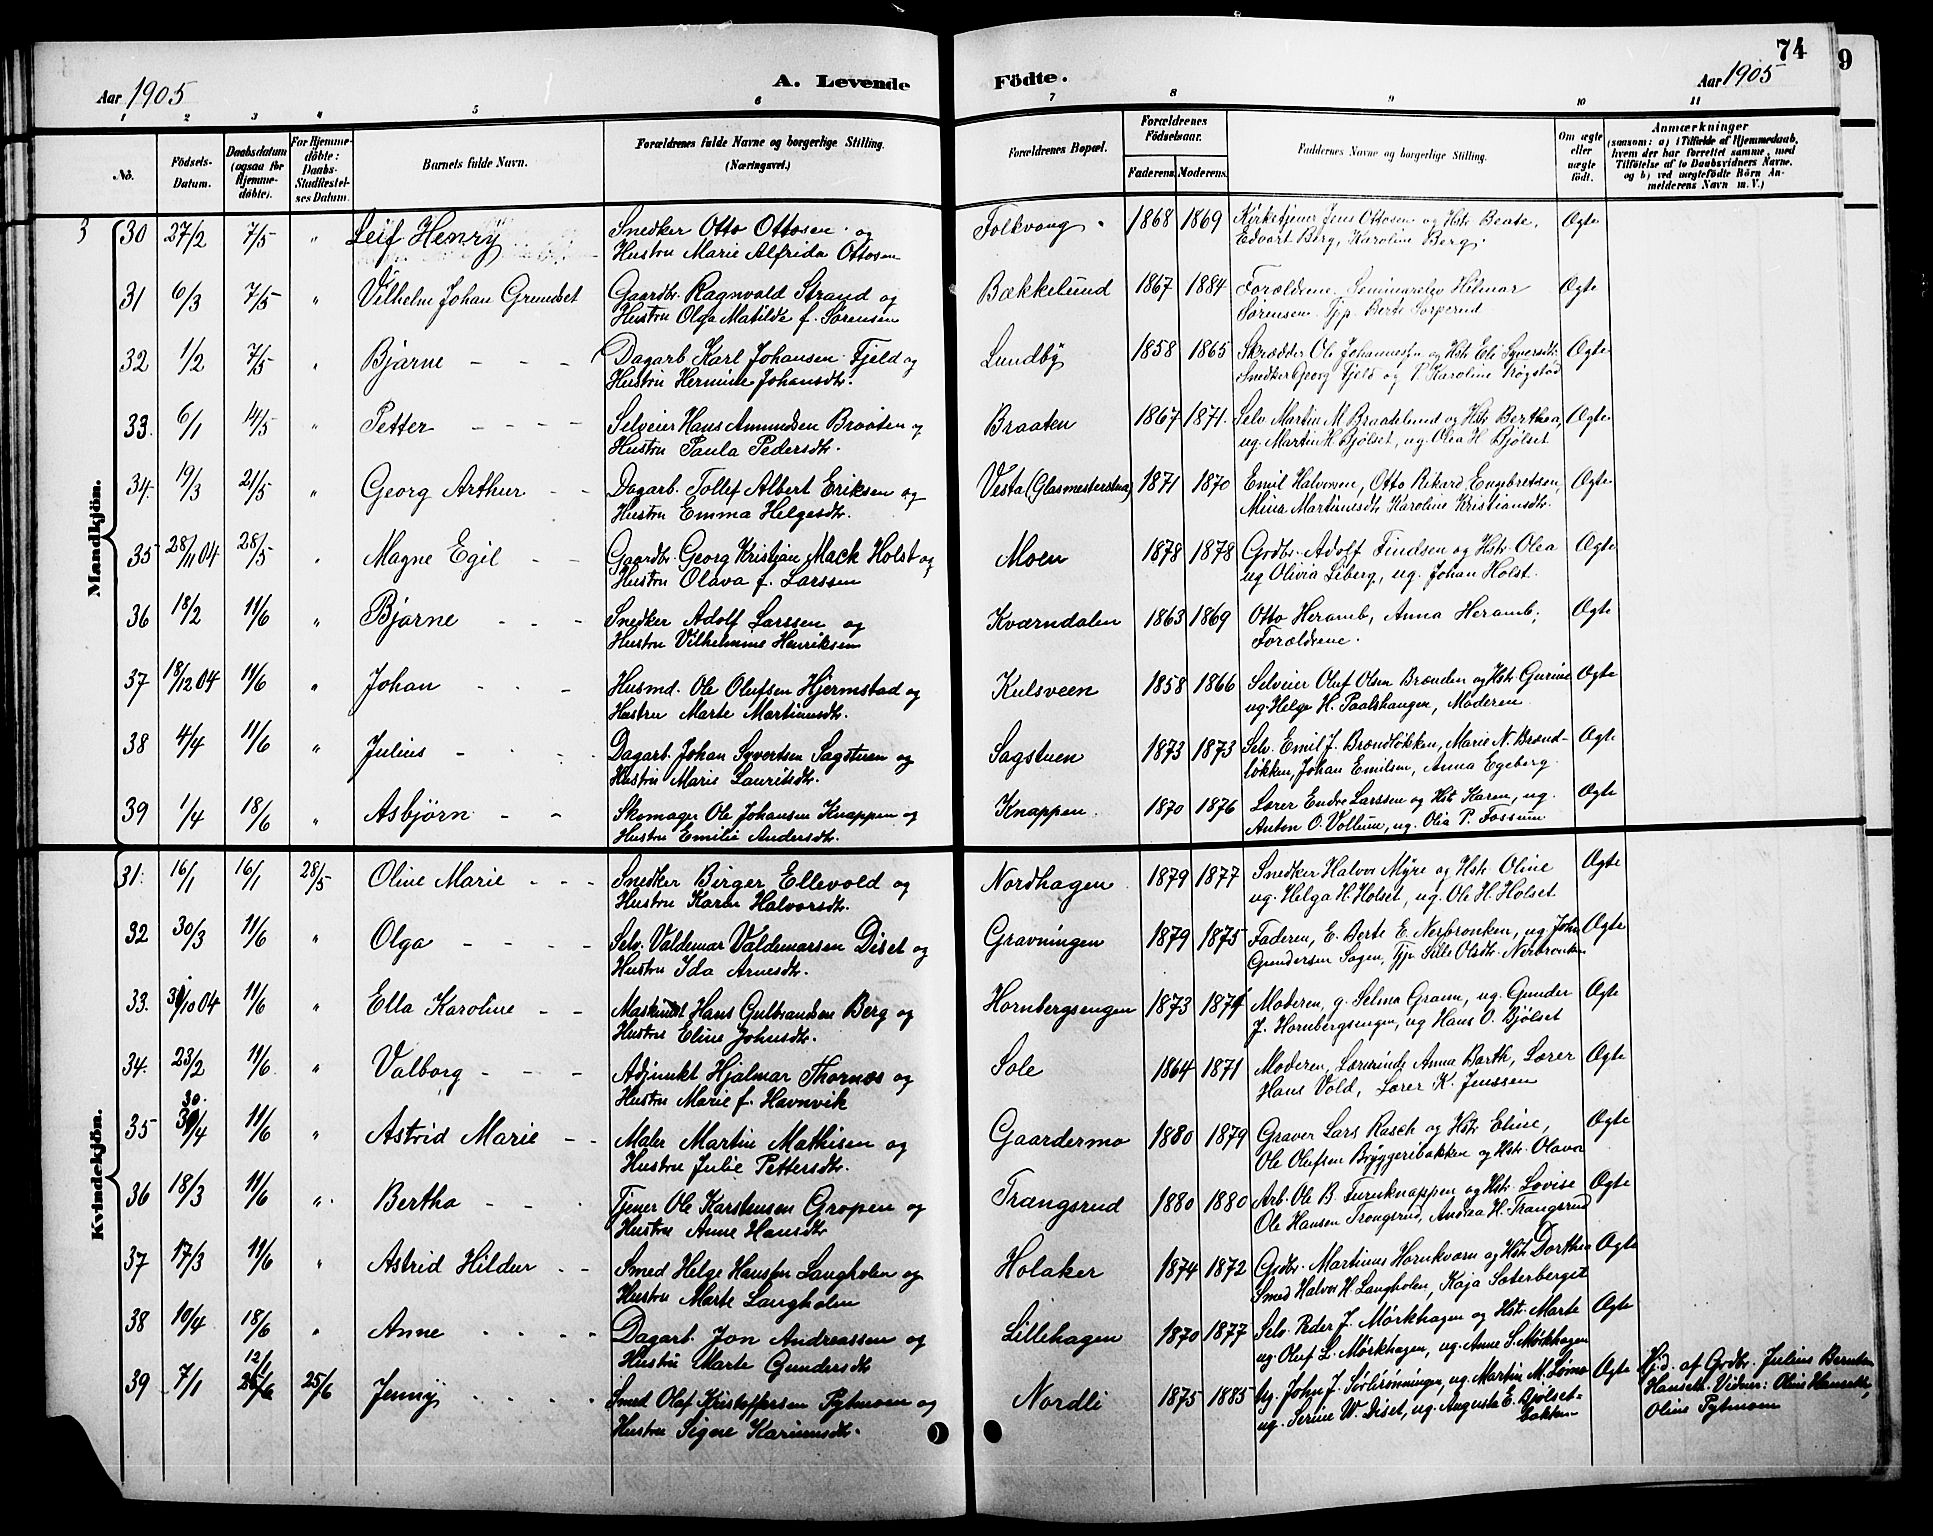 74
9
Aar 1905
A. Levende Födte.
Aar 1905
1 2 3 4 5 6 7 8 9 10 11
No.
Födsels-Datum.
Daabsdatum (ogsaa for Hjemmedøbte).
For Hjemmedøbte: Daabs-Stadfæstelses Datum.
Barnets fulde Navn.
Forældrenes fulde Navne og borgerlige Stilling. (Næringsvei.)
Forældrenes Bopæl.
Forældrenes Födselsaar.
Faderens. Moderens.
Faddernes Navne og borgerlige Stilling.
Om ægte eller uægte født.
Anmærkninger
(saasom: a) i Tilfælde af Hjemmedaab, hvem der har forrettet samme, med Tilføielse af to Daabsvidners Navne. og b) ved uægtefødte Börn Anmelderens Navn m. V.)
Mandkjön.
3 30 27/2 7/5 " Leif Henry Snedker Otto Ottosen og Folkvang 1868 1869 Kirketjener Jens Ottosen og Hst Beate, Ægte
Hustru Marie Alfrida Ottosen Edvart Berg, Karoline Berg.
31 6/3 7/5 " Vilhelm Johan Grundset Gaardbr. Ragnvald Strand og Bækkelund 1867 1884 Forældrene, Seminarelev Hilmar Ægte
Hustru Olga Matilde f. Sørensen Sörensen, Tjp. Berte Torperud
32 1/2 7/5 " Bjarne Dagarb. Karl Johansen Fjeld og Lundby 1858 1865 Skrædder Ole Johannessen og Hst Eli Syversdtr, Ægte
Hustru Hermine Johansdtr. Snedker Georg Fjeld og P. Karoline Røgstad
33. 6/1 14/5 " Petter Selveier Hans Amundsen Braaten og Braaten 1867 1871. Selv Martin M Braatelund og Hst Berthea, Ægte
Hustru Paula Pedersdtr. ug. Martin H. Bjölset, ug. Olea H. Bjölset
34. 19/3 21/5 " Georg Arthur Dagarb. Tollef Albert Eriksen og Vesta (Glasmesterstua) 1871 1870 Emil Halvorsen, Otto Rikard Engebretsen, Ægte
Hustru Emma Helgesdtr. Mina Martinusdtr Karoline Kristiansdtr.
35 28/11 04 28/5 " Magne Egil Gaardbr. Georg Kristian Mack Holst og Moen 1878 1878 Grdbr. Adolf Findsen og Hstr Olea Ægte
Hustru Olava f. Larssen ug Olivia Liberg, ug. Johan Holst.
36 18/2 11/6 " Bjarne Snedker Adolf Larssen og Kværndalen 1863 1869 Otto Heramb, Anna Heramb, Ægte
Hustru Vilhelmine Henriksen Forældrene.
37 18/12 04 11/6 " Johan Husmd. Ole Olufsen Hjermstad og Kulsveen 1858 1866 Selveier Oluf Olsen Brænden og Hst Gurine Ægte
Hustru Marte Martinusdtr. ug. Helge H. Paalshaugen, Moderen
38 4/4 11/6 " Julius Dagarb. Johan Syvertsen Sagstuen og Sagstuen 1873 1873 Selv. Emil J. Brændløkken, Marie N. Brænd- Ægte
Hustru Marie Lauritsdtr. løkken, Johan Emilsen, Anna Egeberg.
39 1/4 18/6 " Asbjørn Skomager Ole Johansen Knappen og Knappen. 1870 1876 Lærer Endre Larssen og Hst Karen, ug. Ægte
Hustru Emilie Andersdtr. Anton O. Vollum, ug. Olia P. Fossum
Kvindekjön.
31. 16/1 16/1 28/5 Oline Marie Snedker Birger Ellevold og Nordhagen 1879 1877 Snedker Halvor Myre og Hst Oline Ægte
Hustru Karen Halvorsdtr. ug. Helga H. Holset, ug. Ole H. Holset
32 30/3 11/6 " Olga Selv. Valdemar Valdemarsen Diset og Gravningen 1879 1875 Faderen, E. Berte E. Nerbronken, ug John Ægte
Hustru Ida Arnesdtr. Gundersen Sagen, Tjp. Sille Olsdtr. Nerbronken
33. 31/10 04 11/6 " Ella Karoline Maskinist Hans Gulbrandsen Berg og Hornbergsengen 1873 1874 Moderen, g. Selma Gram, ug. Gunder Ægte
Hustru Eline Johnsdtr. J. Hornbergsengen, ug Hans O. Bjölset
34. 23/2 11/6 " Valborg Adjunkt Hjalmar Thornæs og Sole 1864 1871 Moderen, Lærerinde Anna Barth, Lærer Ægte
Hustru Marie f. Havnvik Hans Vold, Lærer K. Jenssen
35 30/4 11/6 " Astrid Marie Maler Martin Mathisen og Gaardermo 1880 1879 Graver Lars Rasch og Hstr Eline, Ægte
Hustru Julie Pettersdtr. Ole Olufsen Bryggeribakken og Hst Olava
36 18/3 11/6 " Bertha Tjener Ole Karstensen Gropen og Trangsrud 1880 1880 Arb. Ole B. Furuknappen og Hst. Lovise Ægte
Hustru Anne Hansdtr Ole Hansen Trangsrud, Andrea H. Trangsrud
37 17/3 11/6 " Astrid Hildur Smed Helge Hansen Langholen og Holaker 1874 1872 Grdbr. Martinus Hornkværn og Hst Dorthea Ægte
Hustru Marte Langholen Smed Halvor H. Langholen, Kaja Sæterberget
38 10/4 18/6 " Anne Dagarb. Jon Andreassen og Lillehagen 1870 1877 Selv. Peder J. Mørkhagen og Hst. Marte Ægte
Hustru Marte Gundersdtr ug. Oluf L. Mørkhagen, ug. Anne S. Mørkhagen
39 7/1 12/1 25/6 Jenny Smed Olaf Kristoffersen Pytmoen og Nordli 1875 1885 ug. John J. Sørlirønningen, ug. Martin M. Ægte Hj.d. af Grdbr. Julius Berntsen
Hustru Signe Kariusdtr. ug. Serine W. Diset, ug. Auguste E. Bjölset-bakken Vidner: Olius Pytmoen